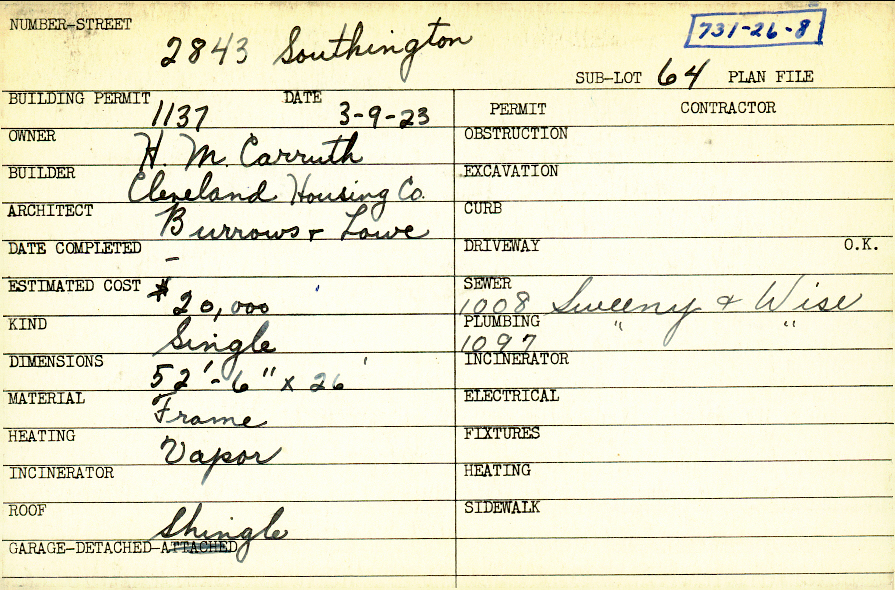 NUMBER-STREET 2843 Southington 731-26-8
SUB-LOT 64 PLAN FILE
BUILDING PERMIT 1137 DATE 3-9-23
OWNER H. M. Carruth
BUILDER Cleveland Housing Co.
ARCHITECT Burrows & Lowe
DATE COMPLETED -
ESTIMATED COST $20,000
KIND Single
DIMENSIONS 52'-6" x 26'
MATERIAL Frame
HEATING Vapor
INCINERATOR
ROOF Shingle
GARAGE-DETACHED-ATTACHED
PERMIT CONTRACTOR
OBSTRUCTION
EXCAVATION
CURB
DRIVEWAY O.K.
SEWER 1008 Sweeny & Wise
PLUMBING 1097 " "
INCINERATOR
ELECTRICAL
FIXTURES
HEATING
SIDEWALK